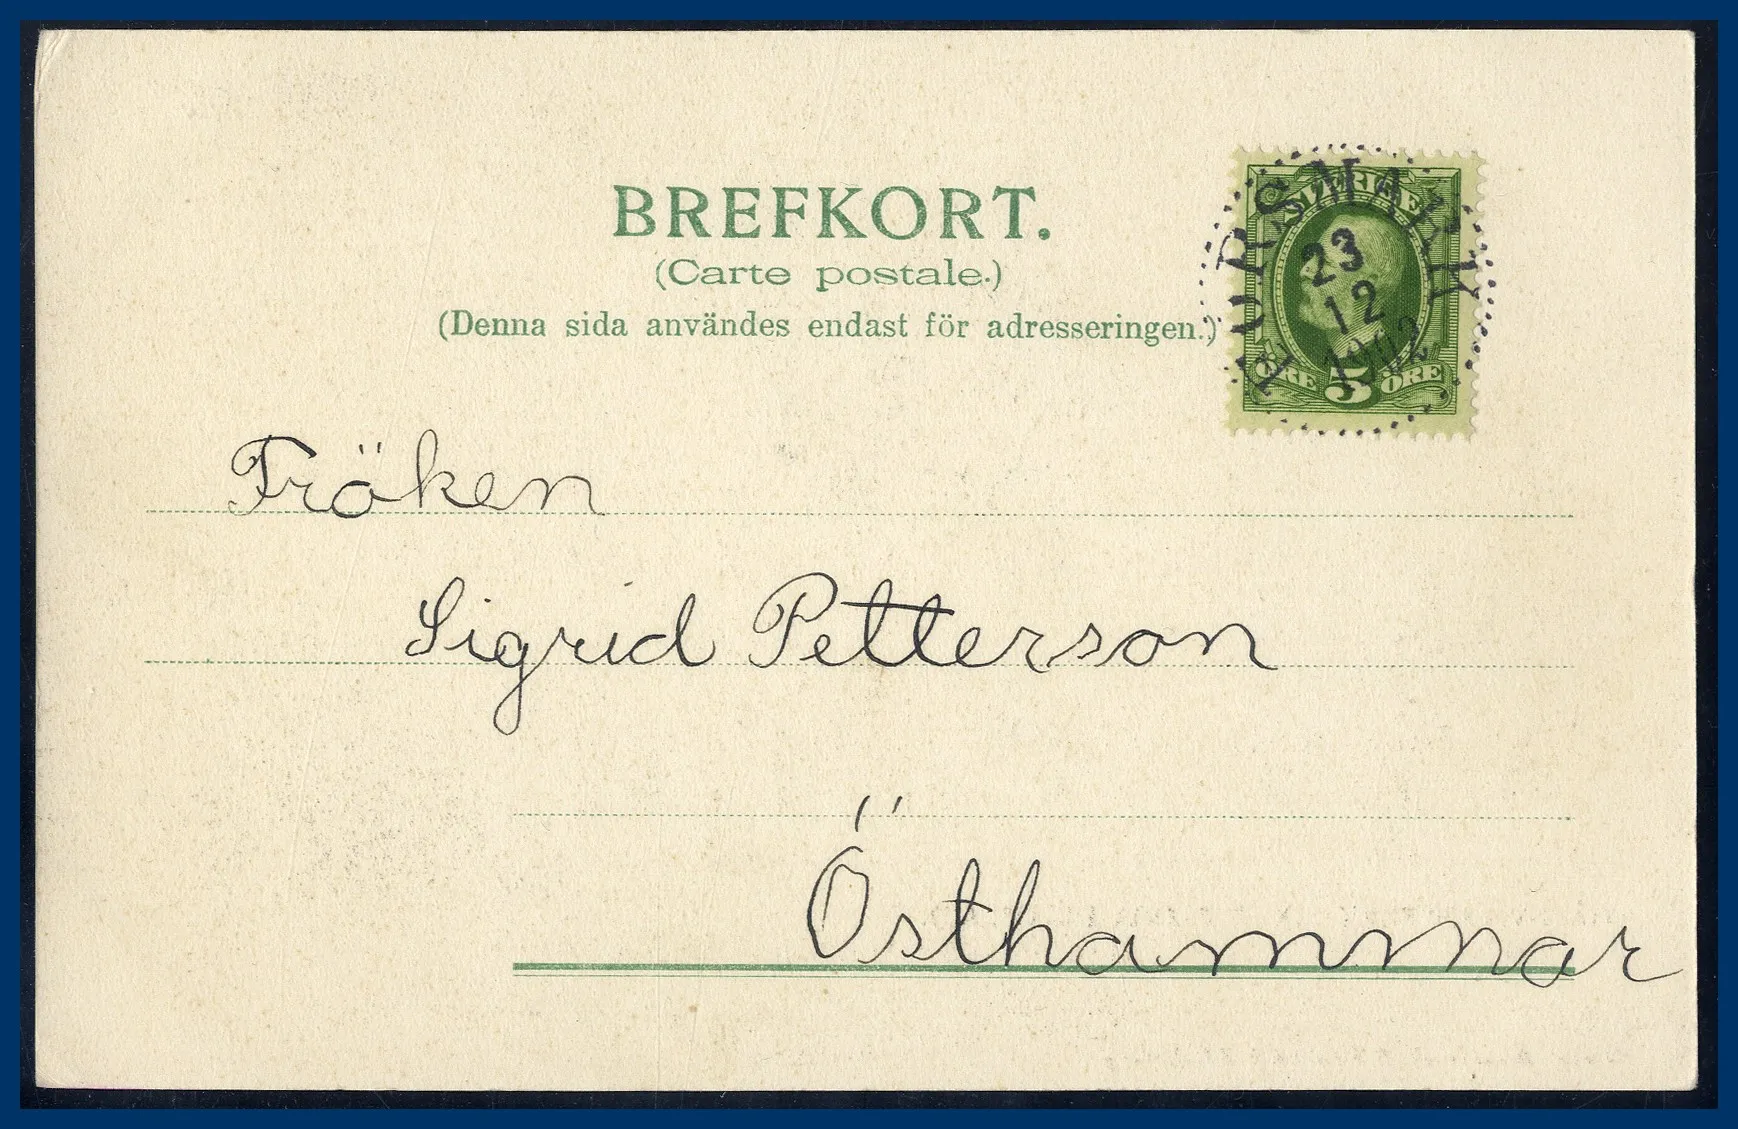 BREFKORT.
(Carte postale.)
(Denna sida användes endast för adresseringen.)
SVERIGE
FORSMARK
23
12
1902
ÖRE 5 ÖRE
Fröken
Sigrid Petterson
Östhammar